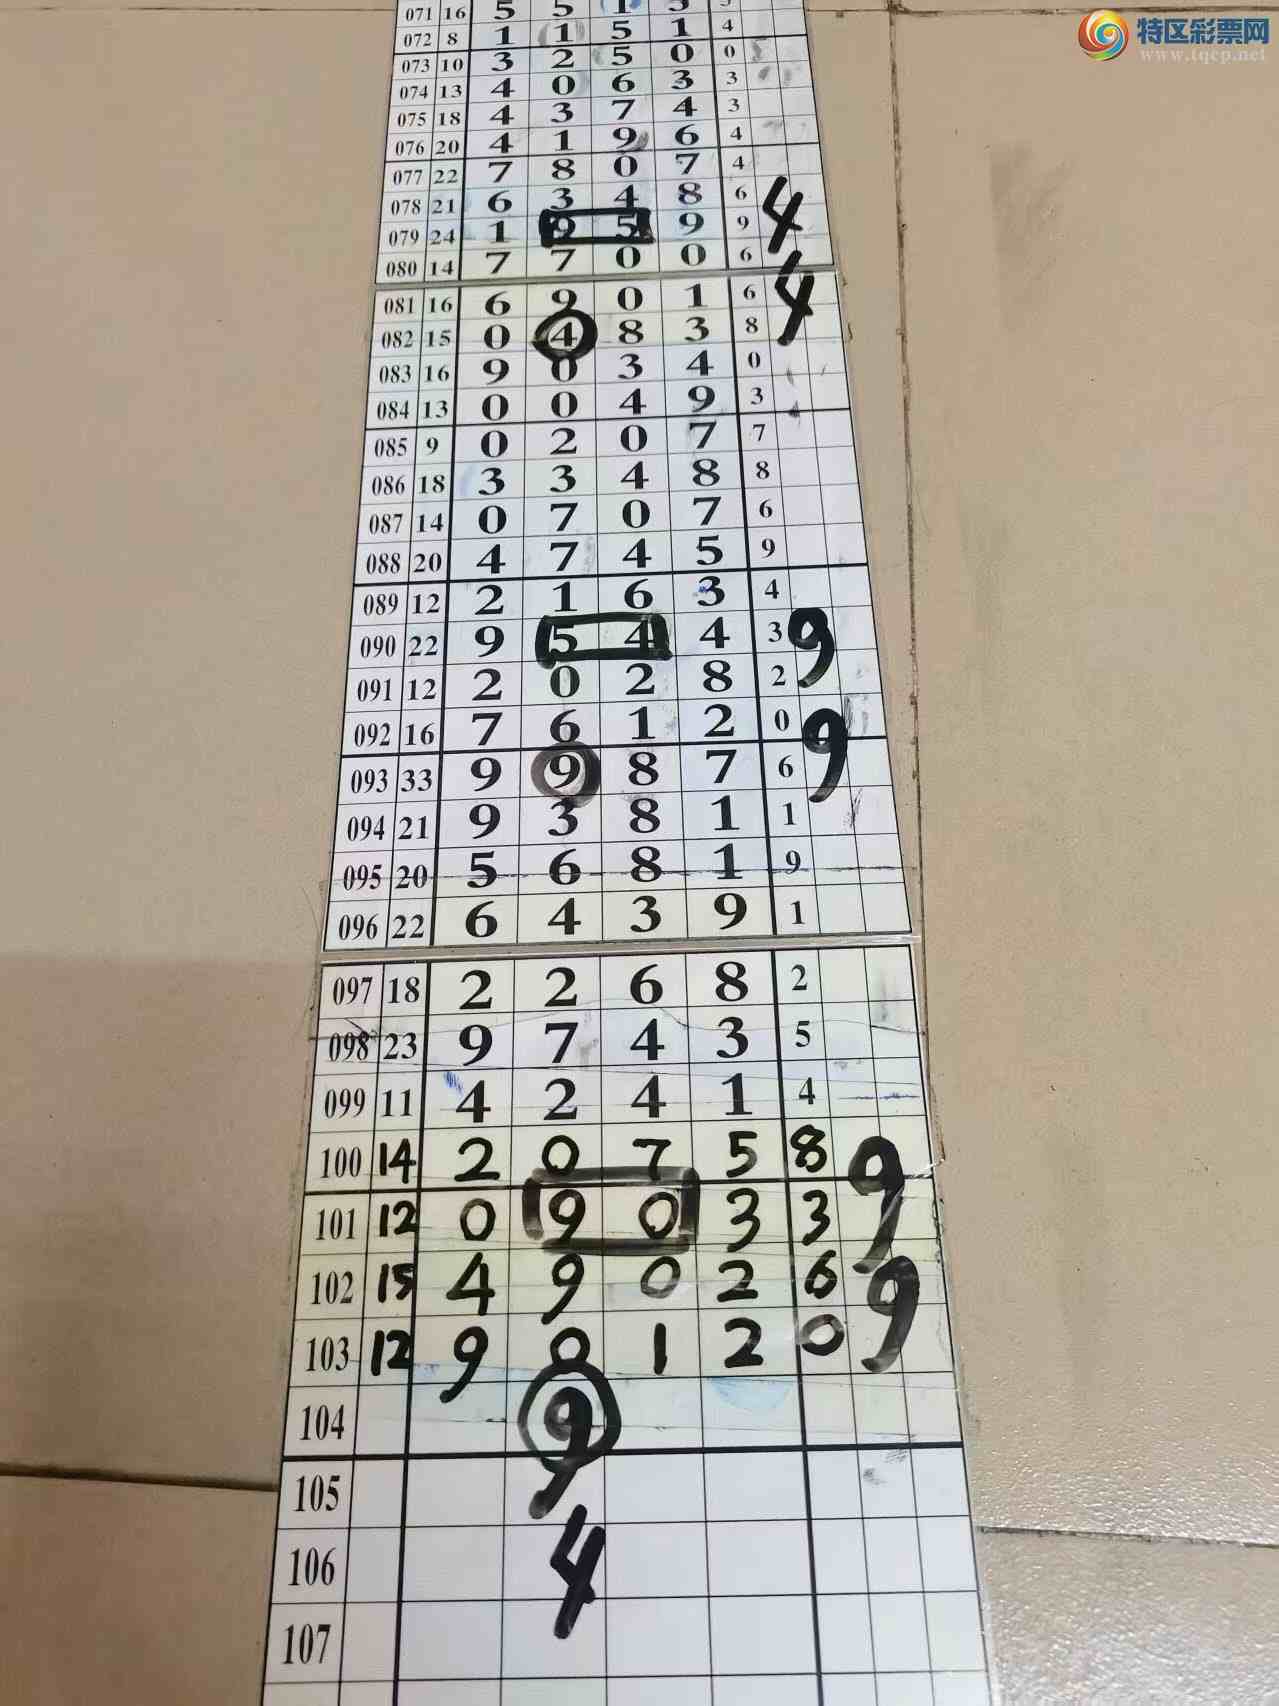 特区彩票网
www.tqcp.net
071 16 5 5 1 3
072 8 1 1 5 1 4
073 10 3 2 5 0 0
074 13 4 0 6 3 3
075 18 4 3 7 4 3
076 20 4 1 9 6 4
077 22 7 8 0 7 4
078 21 6 3 4 8 6
079 24 1 9 5 9 9 4
080 14 7 7 0 0 6
081 16 6 9 0 1 6 4
082 15 0 4 8 3 8
083 16 9 0 3 4 0
084 13 0 0 4 9 3
085 9 0 2 0 7 7
086 18 3 3 4 8 8
087 14 0 7 0 7 6
088 20 4 7 4 5 9
089 12 2 1 6 3 4
090 22 9 5 4 4 3 9
091 12 2 0 2 8 2
092 16 7 6 1 2 0 9
093 33 9 9 8 7 6
094 21 9 3 8 1 1
095 20 5 6 8 1 9
096 22 6 4 3 9 1
097 18 2 2 6 8 2
098 23 9 7 4 3 5
099 11 4 2 4 1 4
100 14 2 0 7 5 8 9
101 12 0 9 0 3 3
102 15 4 9 0 2 6 9
103 12 9 0 1 2 0
104 9
105
106 4
107